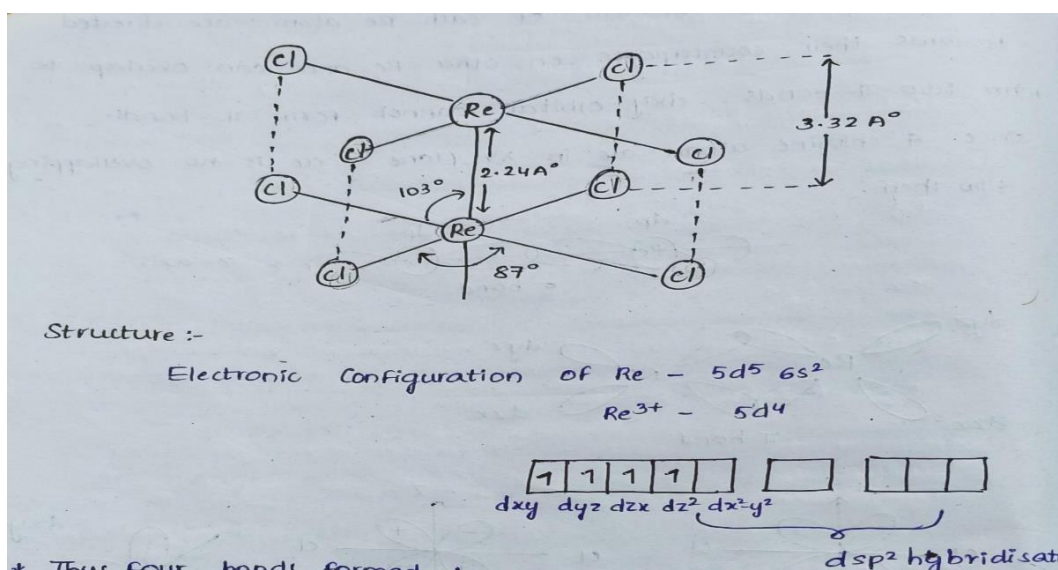 Cl
Cl
Re
3.32 A°
Cl
Cl
2.24A°
Cl
103°
Cl
Re
87°
Cl
Cl
Structure :-
Electronic Configuration of Re - 5d⁵ 6s²
Re³⁺ - 5d⁴
1 1 1 1
dxy dyz dzx dz² dx²-y²
dsp² hybridisat
* Thus four bonds formed